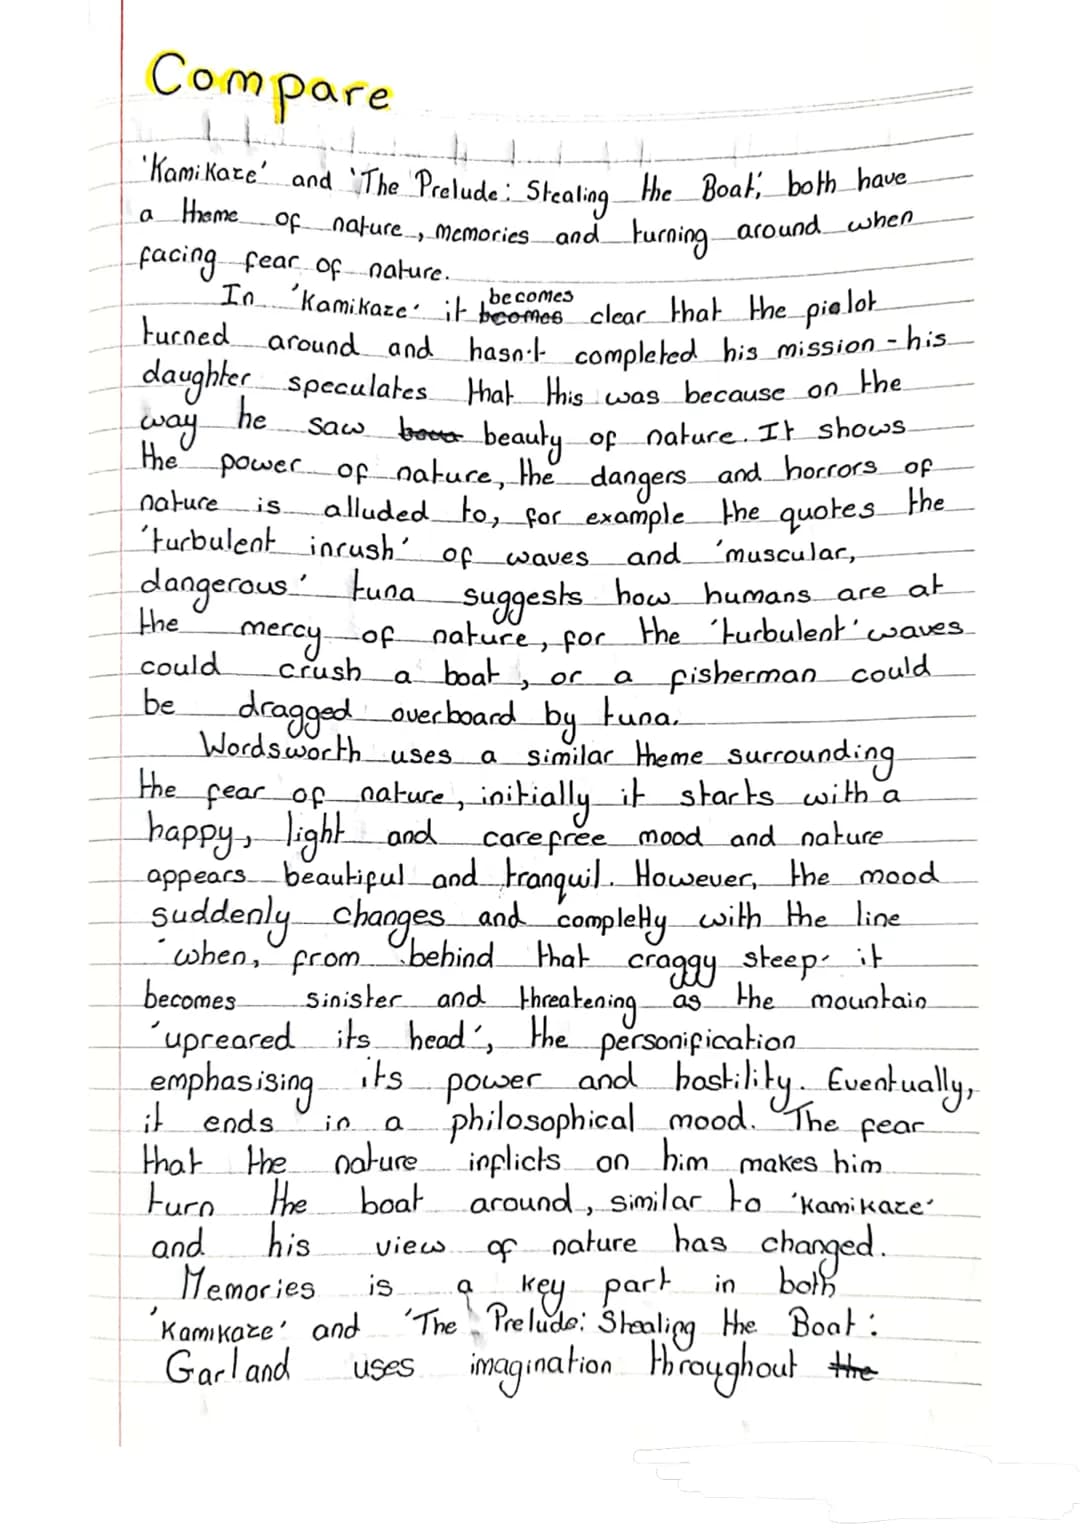 Compare
'Kamikaze' and 'The Prelude: Stealing the Boat', both have
a theme of nature, memories and turning around when
facing fear of nature.
In 'Kamikaze' it becomes beomes clear that the pielot
turned around and hasn't completed his mission - his
daughter speculates that this was because on the
way he saw beauty of nature. It shows
the power of nature, the dangers and horrors of
nature is alluded to, for example the quotes the
'turbulent inrush' of waves and 'muscular,
dangerous' tuna suggests how humans are at
the mercy of nature, for the 'turbulent' waves
could crush a boat, or a fisherman could
be dragged overboard by tuna.
Wordsworth uses a similar theme surrounding
the fear of nature, initially it starts with a
happy, light and carefree mood and nature
appears beautiful and tranquil. However, the mood
suddenly changes and completly with the line
'when, from behind that craggy steep' it
becomes sinister and threatening as the mountain
'upreared its head', the personification
emphasising its power and hostility. Eventually,
it ends in a philosophical mood. The fear
that the nature inflicts on him makes him
turn the boat around, similar to 'Kamikaze'
and his view of nature has changed.
Memories is a key part in both
'Kamikaze' and 'The Prelude: Stealing the Boat:
Garland uses imagination throughout the